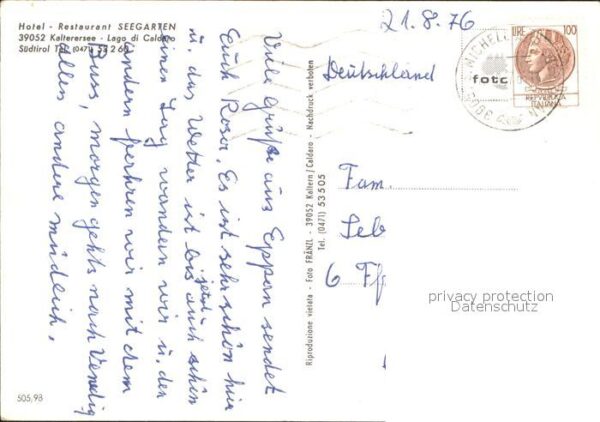 Hotel - Restaurant SEEGARTEN
39052 Kalterersee - Lago di Caldaro
Südtirol Tel. (0471) 53 2 60
21.8.76
Viele Grüße aus Eppan sendet
Euch Rosa. Es ist sehr schön hier
u. das Wetter ist bis jetzt auch schön
einen Tag wandern wir u. den
andern fahren wir mit dem
Bus, morgen gehts nach Venedig
alles andere mündlich.
Deutschland
Fam.
Seb
6 Ff
LIRE 100
REPVBBLICA
ITALIANA
MICHELE
fotc
Riproduzione vietata - Foto FRÄNZL - 39052 Kaltern/Caldaro - Nachdruck verboten
Tel. (0471) 53505
505,98
privacy protection
Datenschutz